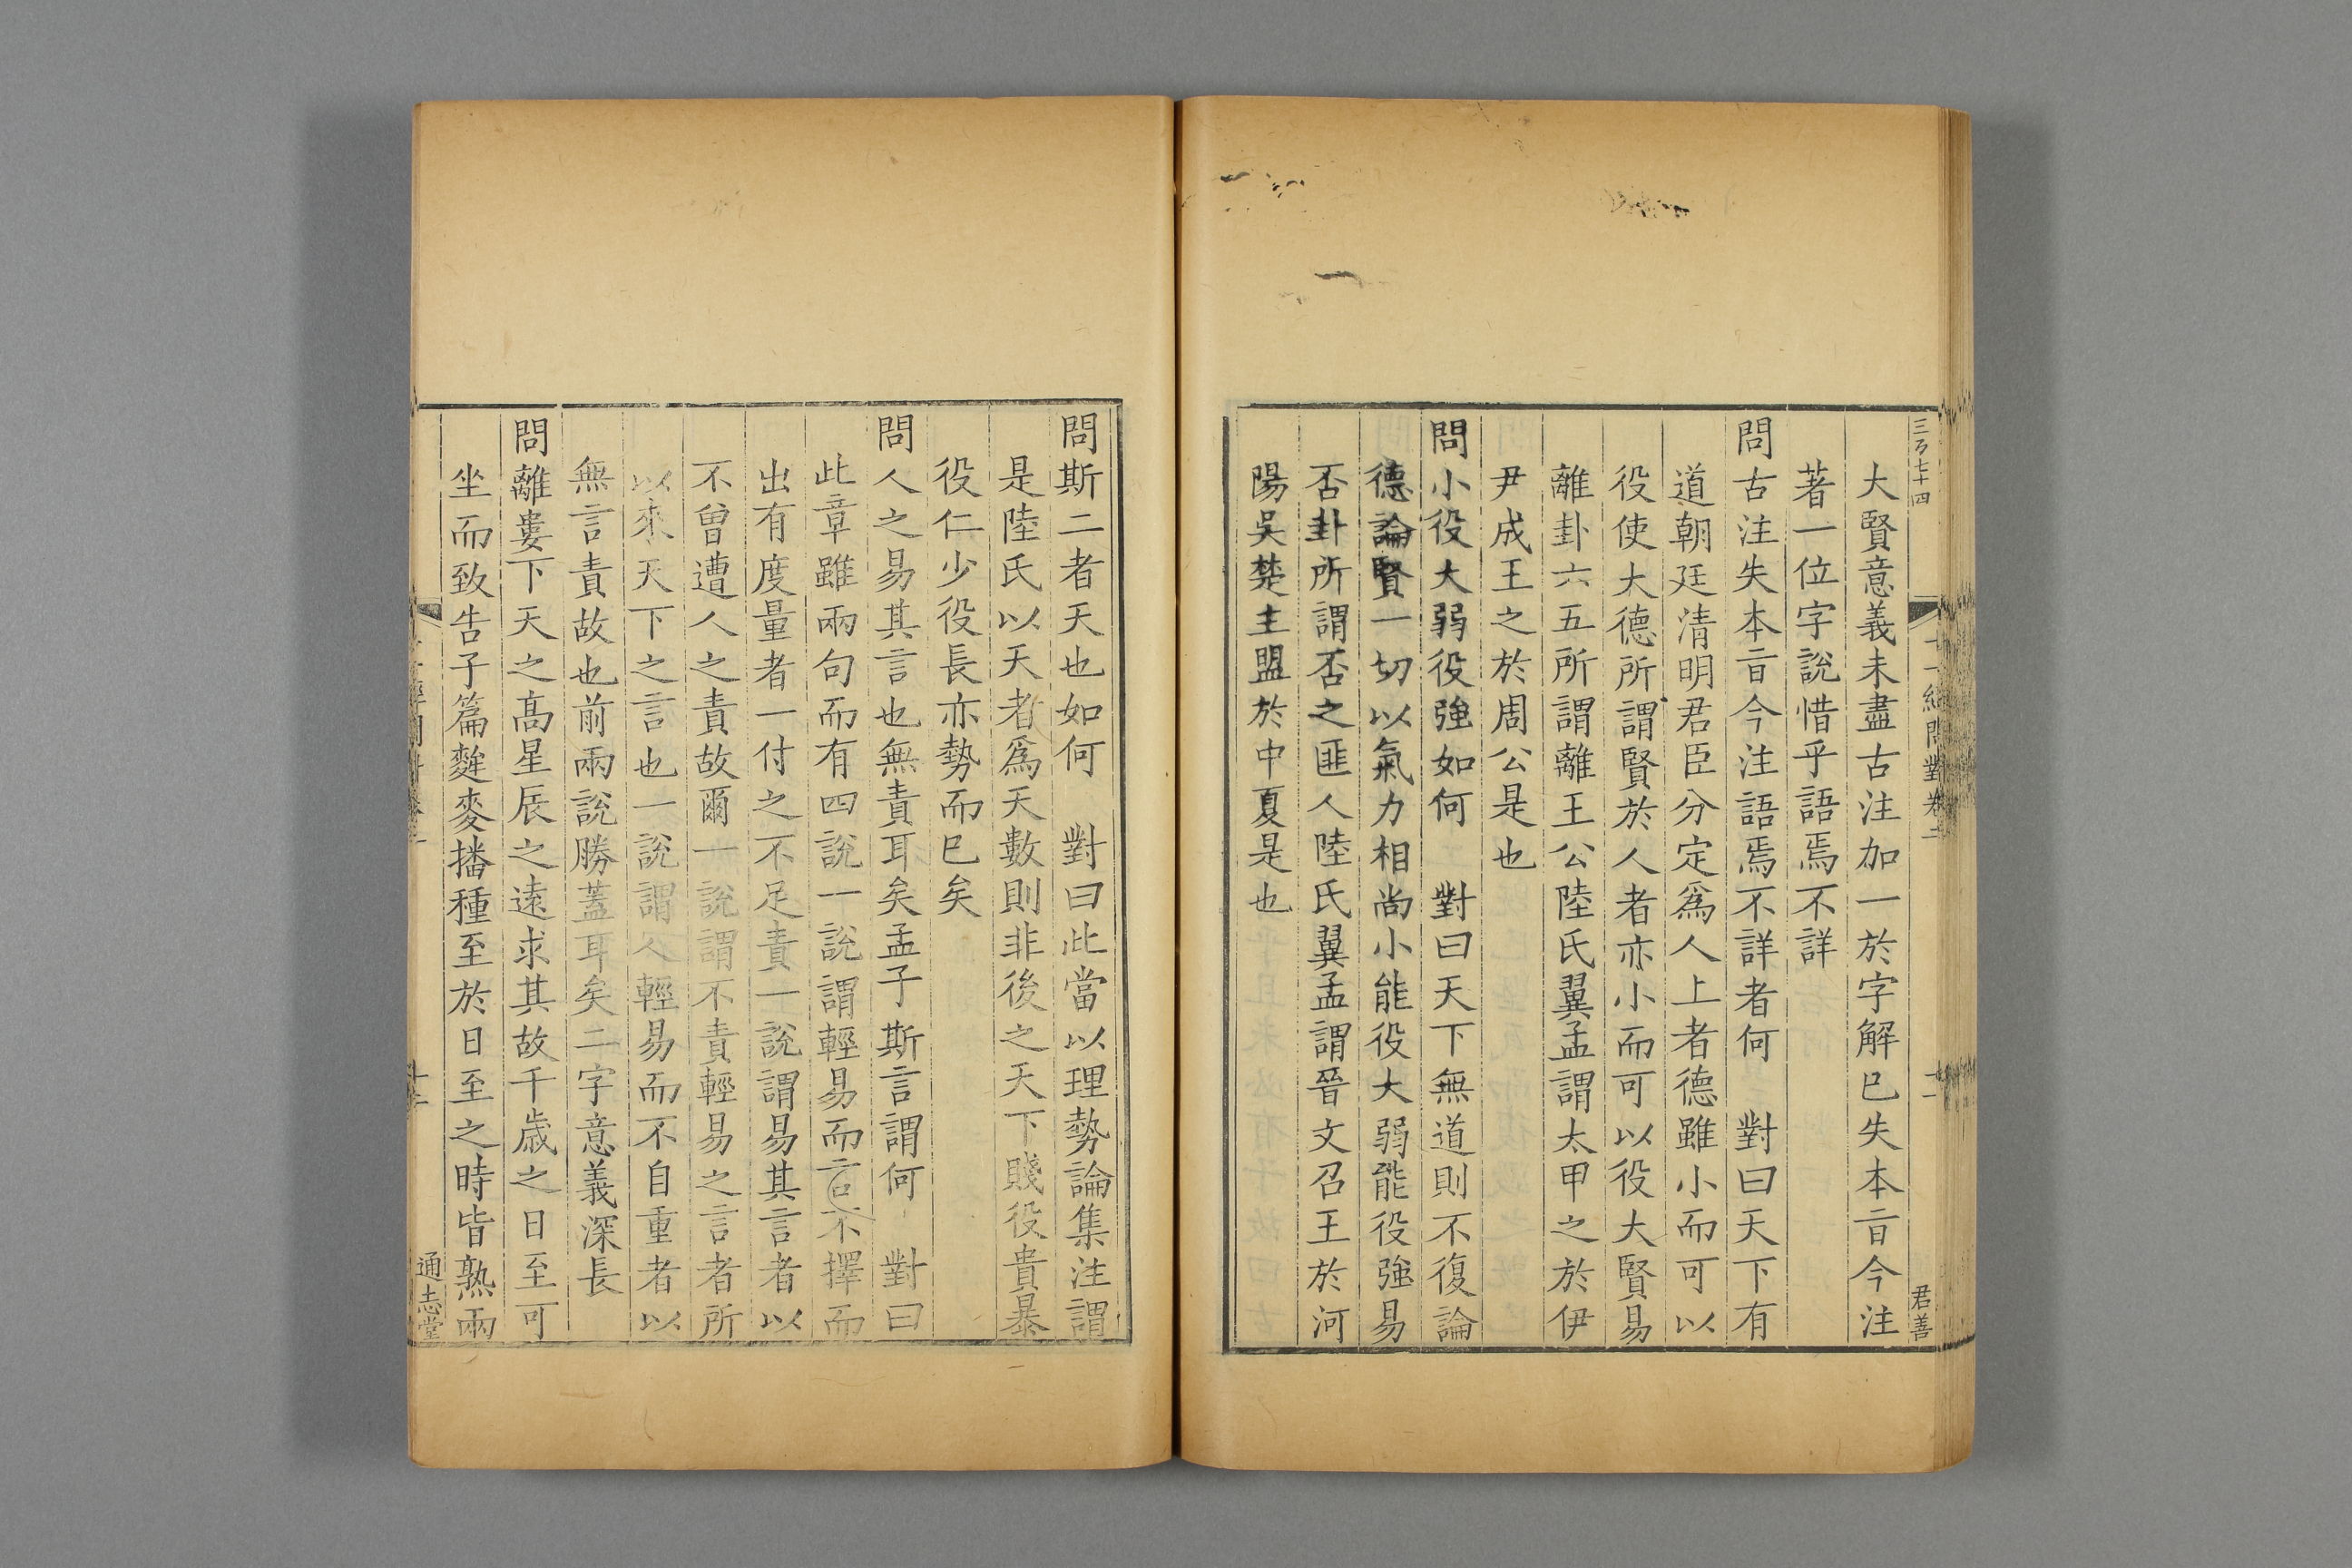 三百七十四
十一經問對卷二
十一
君善
大賢意義未盡古注加一於字解已失本㫖今注
著一位字說惜乎語焉不詳
問古注失本㫖今注語焉不詳者何　對曰天下有
道朝廷清明君臣分定爲人上者德雖小而可以
役使大德所謂賢於人者亦小而可以役大賢易
離卦六五所謂離王公陸氏翼孟謂太甲之於伊
尹成王之於周公是也
問小役大弱役強如何　對曰天下無道則不復論
德論賢一切以氣力相尚小能役大弱能役強易
否卦所謂否之匪人陸氏翼孟謂晉文召王於河
陽吳楚主盟於中夏是也
問斯二者天也如何　對曰此當以理勢論集注謂
是陸氏以天者爲天數則非後之天下賤役貴暴
役仁少役長亦勢而巳矣
問人之易其言也無責耳矣孟子斯言謂何　對曰
此章雖兩句而有四說一說謂輕易而言不擇而
出有度量者一付之不足責一說謂易其言者以
不曾遭人之責故爾一說謂不責輕易之言者所
以來天下之言也一說謂人輕易而不自重者以
無言責故也前兩說勝蓋耳矣二字意義深長
問離婁下天之高星辰之遠求其故千歲之日至可
坐而致告子篇麰麥播種至於日至之時皆熟兩
通志堂